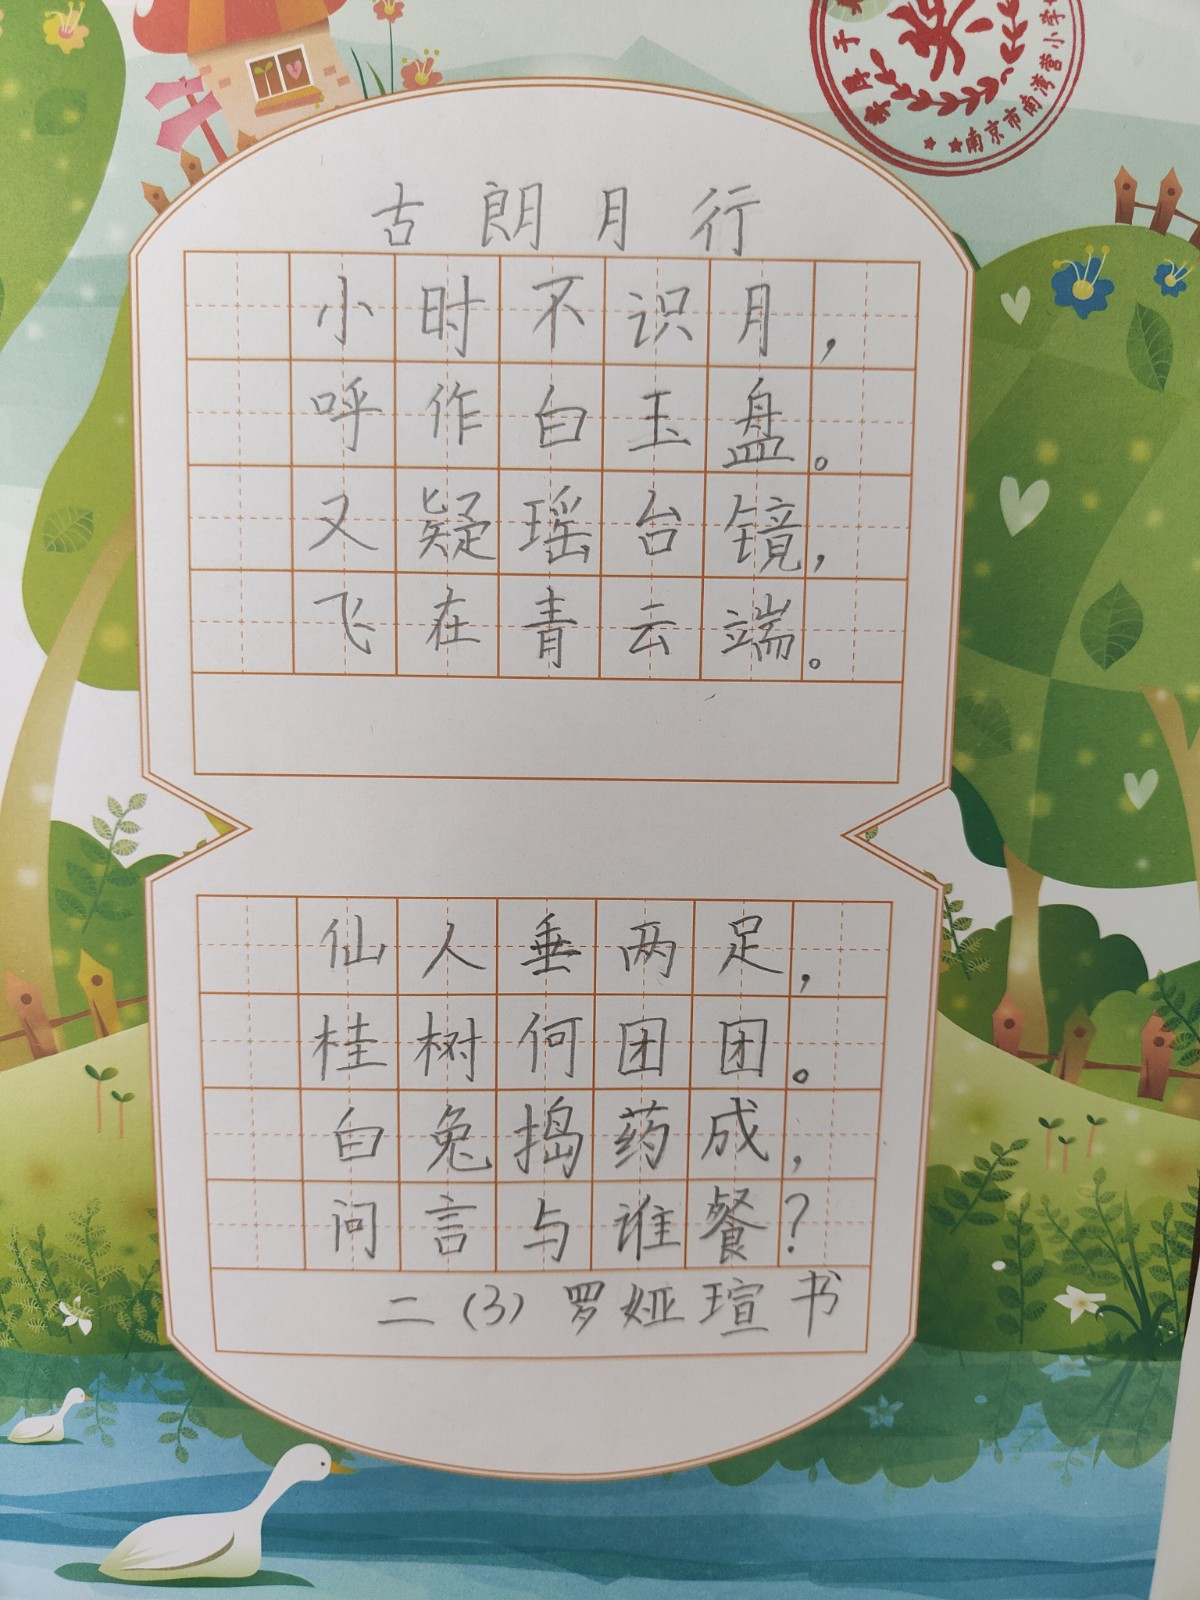 奖
南京市南湾营小学
古朗月行
小时不识月，
呼作白玉盘。
又疑瑶台镜，
飞在青云端。
仙人垂两足，
桂树何团团。
白兔捣药成，
问言与谁餐？
二（3）罗娅瑄书